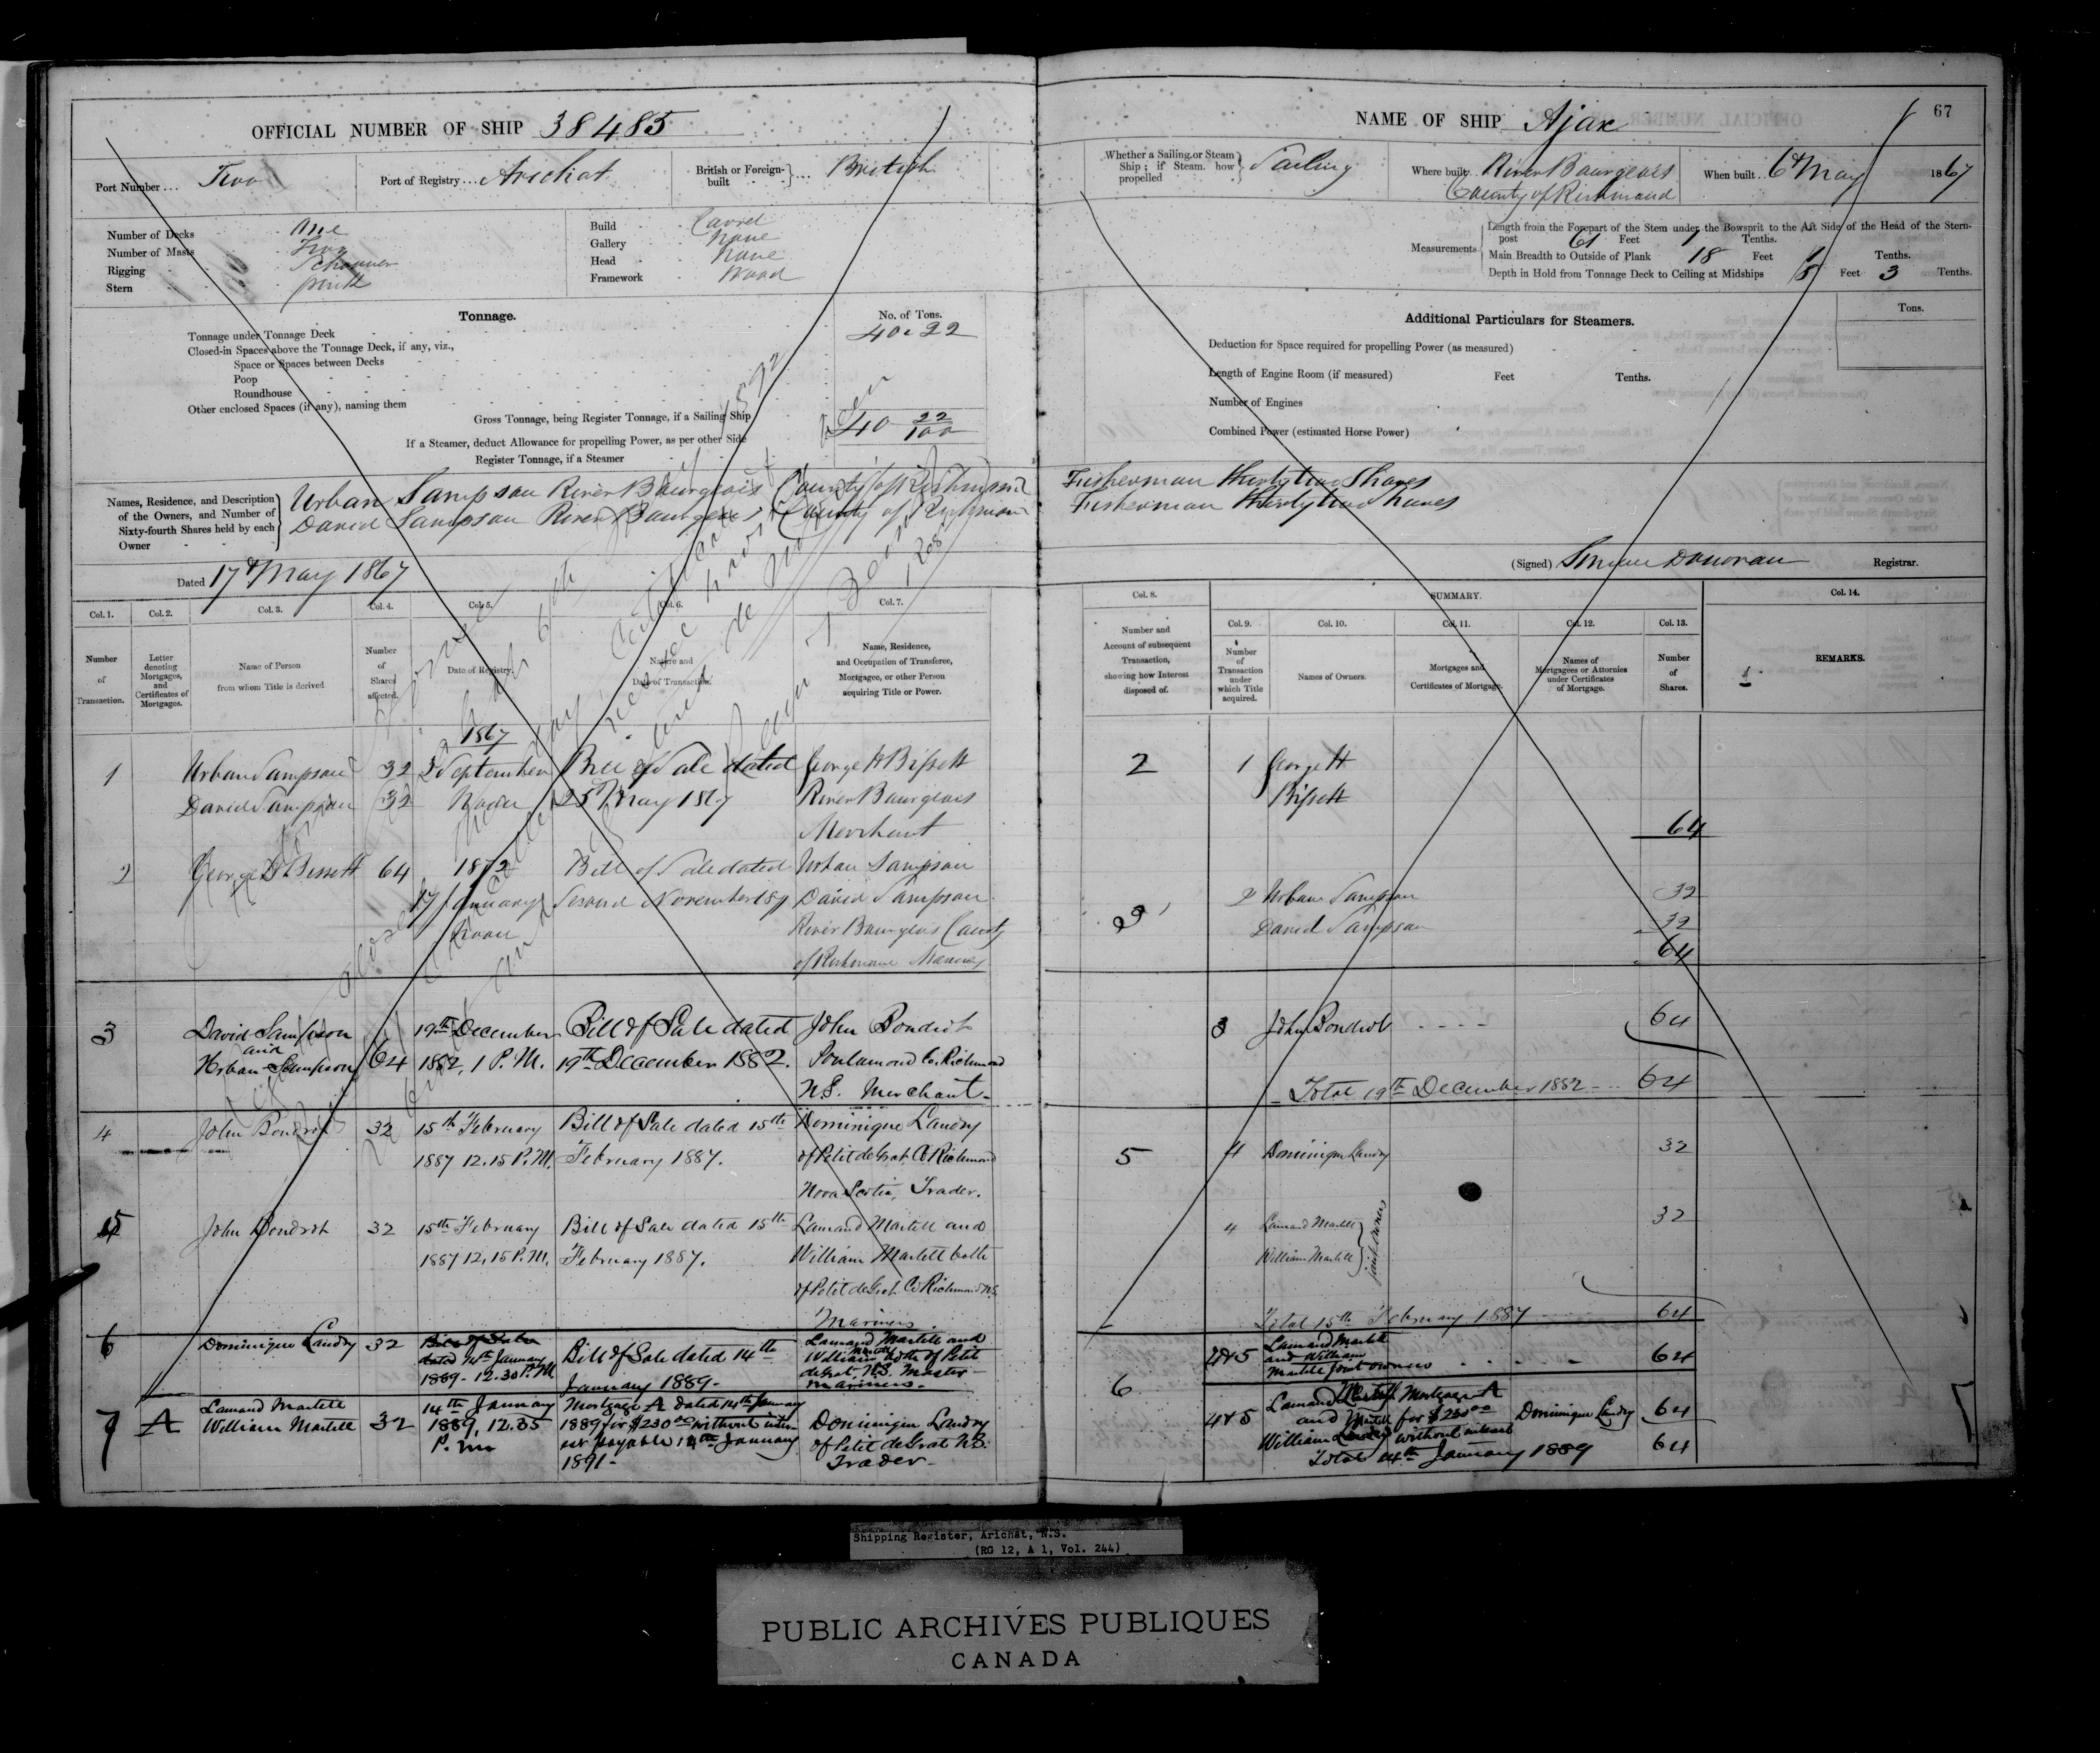 OFFICIAL NUMBER OF SHIP 38485
Port Number ... Two
Port of Registry ... Arichat
British or Foreign-built ... British
Number of Decks One
Number of Masts Two
Rigging Schooner
Stern
Build Carvel
Gallery None
Head None
Framework Wood
Tonnage.
No. of Tons.
Tonnage under Tonnage Deck 40.22
Closed-in Spaces above the Tonnage Deck, if any, viz.,
Space or Spaces between Decks
Poop
Roundhouse
Other enclosed Spaces (if any), naming them
Gross Tonnage, being Register Tonnage, if a Sailing Ship 40 22/100
If a Steamer, deduct Allowance for propelling Power, as per other Side
Register Tonnage, if a Steamer
Names, Residence, and Description of the Owners, and Number of Sixty-fourth Shares held by each Owner
Urban Sampson River Bourgeois County of Richmond
David Sampson River Bourgeois County of Richmond
Dated 17th May 1867
Col. 1. Col. 2. Col. 3. Col. 4. Col. 5. Col. 6. Col. 7.
Number of Transaction.
Letter denoting Mortgages, and Certificates of Mortgages.
Name of Person from whom Title is derived
Number of Shares affected.
Date of Registry.
Nature and Date of Transaction.
Name, Residence, and Occupation of Transferee, Mortgagee, or other Person acquiring Title or Power.
1867
1 Urban Sampson 32 September Bill of Sale dated George H Bissett
David Sampson 32 Noon 25 May 1867 River Bourgeois
Merchant
2 George H Bissett 64 1872 Bill of Sale dated Urban Sampson
17 January Second November 1871 David Sampson
Noon River Bourgeois County
of Richmond
3 David Sampson 19th December Bill of Sale dated John Bondrot
and
Urban Sampson 64 1882, 1 P.M. 19th December 1882. Co. Richmond
N.S. Merchant
4 John Bondrot 32 15th February Bill of Sale dated 15th Dominique Landry
1887 12.15 P.M. February 1887. of Petit de Grat, Co Richmond
Nova Scotia, Trader.
5 John Bondrot 32 15th February Bill of Sale dated 15th Lamand Martell and
1887 12.15 P.M. February 1887. William Martell both
of Petit de Grat Co Richmond N.S.
Mariners.
6 Dominique Landry 32 Bill of Sale
dated 14th January Bill of Sale dated 14th Lamand Martell and
1889 - 12.30 P.M January 1889 - William Martell both of Petit
de Grat, N.S. Master
mariners.
7 A Lamand Martell 14th January Mortgage A dated 14th January
William Martell 32 1889, 12.35 1889 for $230.00 without inter- Dominique Landry
P.M. est payable 14th January of Petit de Grat N.S.
1891 - Trader -
67
NAME OF SHIP Ajax
Whether a Sailing or Steam Ship; if Steam, how propelled Sailing
Where built River Bourgeois
County of Richmond
When built 6th May 1867
Measurements
Length from the Forepart of the Stem under the Bowsprit to the Aft Side of the Head of the Stern-
post 61 Feet 1 Tenths.
Main Breadth to Outside of Plank 18 Feet Tenths.
Depth in Hold from Tonnage Deck to Ceiling at Midships 8 Feet 3 Tenths.
Additional Particulars for Steamers.
Tons.
Deduction for Space required for propelling Power (as measured)
Length of Engine Room (if measured) Feet Tenths.
Number of Engines
Combined Power (estimated Horse Power)
Fisherman Thirty two Shares
Fisherman Thirty two Shares
(Signed) Donovan Registrar.
Col. 8. SUMMARY. Col. 14.
Col. 9. Col. 10. Col. 11. Col. 12. Col. 13.
Number and Account of subsequent Transaction, showing how Interest disposed of.
Number of Transaction under which Title acquired.
Names of Owners.
Mortgages and Certificates of Mortgage.
Names of Mortgagees or Attornies under Certificates of Mortgage.
Number of Shares.
REMARKS.
2 1 George H
Bissett
64
3 2 Urban Sampson 32
David Sampson 32
64
3 John Bondrot 64
Total 19th December 1882 64
5 4 Dominique Landry 32
4 Lamand Martell 32
William Martell joint owners
Total 15th February 1887 64
6 4&5 Lamand Martell
and William
Martell joint owners 64
4&5 Lamand Martell Mortgage A
and Martell for $230.00 Dominique Landry 64
William without interest
Total 14th January 1889 64
Shipping Register, Arichat, N.S.
(RG 12, A 1, Vol. 244)
PUBLIC ARCHIVES PUBLIQUES
CANADA